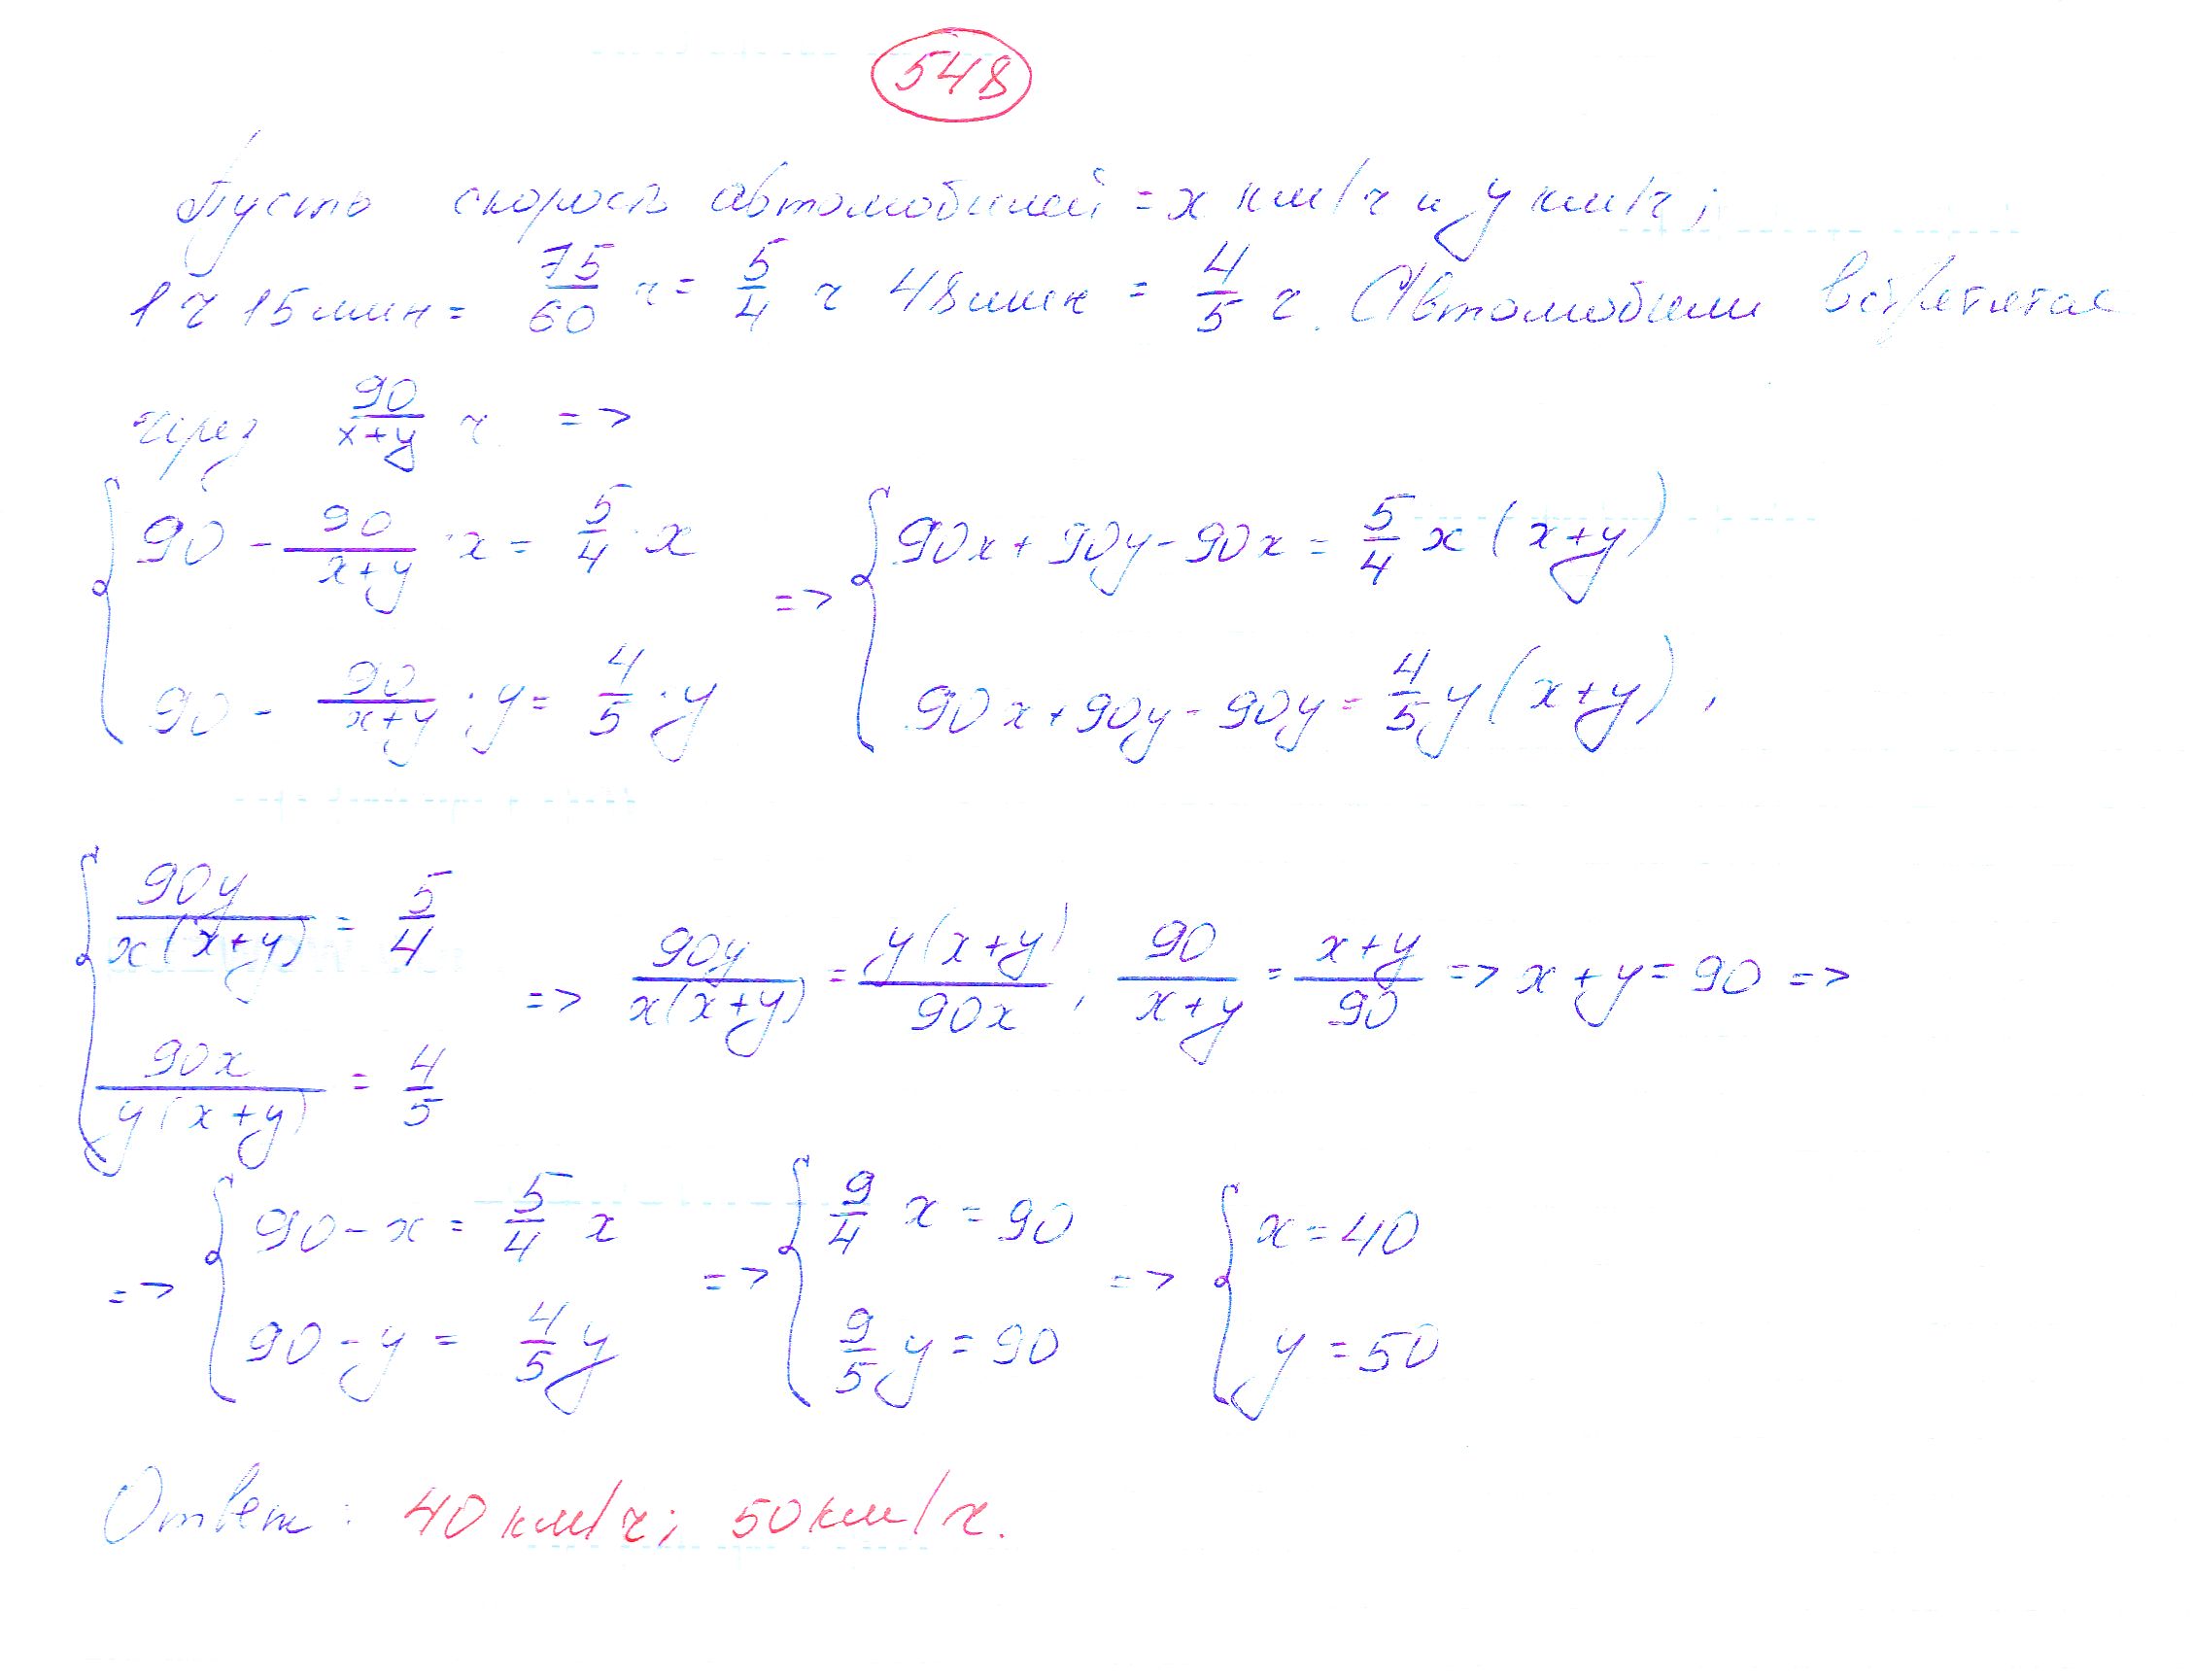 548
Пусть скорость автомобилей = x км/ч и y км/ч;
1 ч 15 мин = 75/60 ч = 5/4 ч 48 мин = 4/5 ч. Автомобили встретятся
через 90/(x+y) ч =>
{ 90 - 90/(x+y) · x = 5/4 · x => { 90x + 90y - 90x = 5/4 x (x+y)
90 - 90/(x+y) · y = 4/5 · y 90x + 90y - 90y = 4/5 y (x+y) ,
{ 90y/(x(x+y)) = 5/4 => 90y/(x(x+y)) = y(x+y)/(90x) , 90/(x+y) = (x+y)/90 => x + y = 90 =>
90x/(y(x+y)) = 4/5
=> { 90 - x = 5/4 x => { 9/4 x = 90 => { x = 40
90 - y = 4/5 y 9/5 y = 90 y = 50
Ответ: 40 км/ч; 50 км/ч.